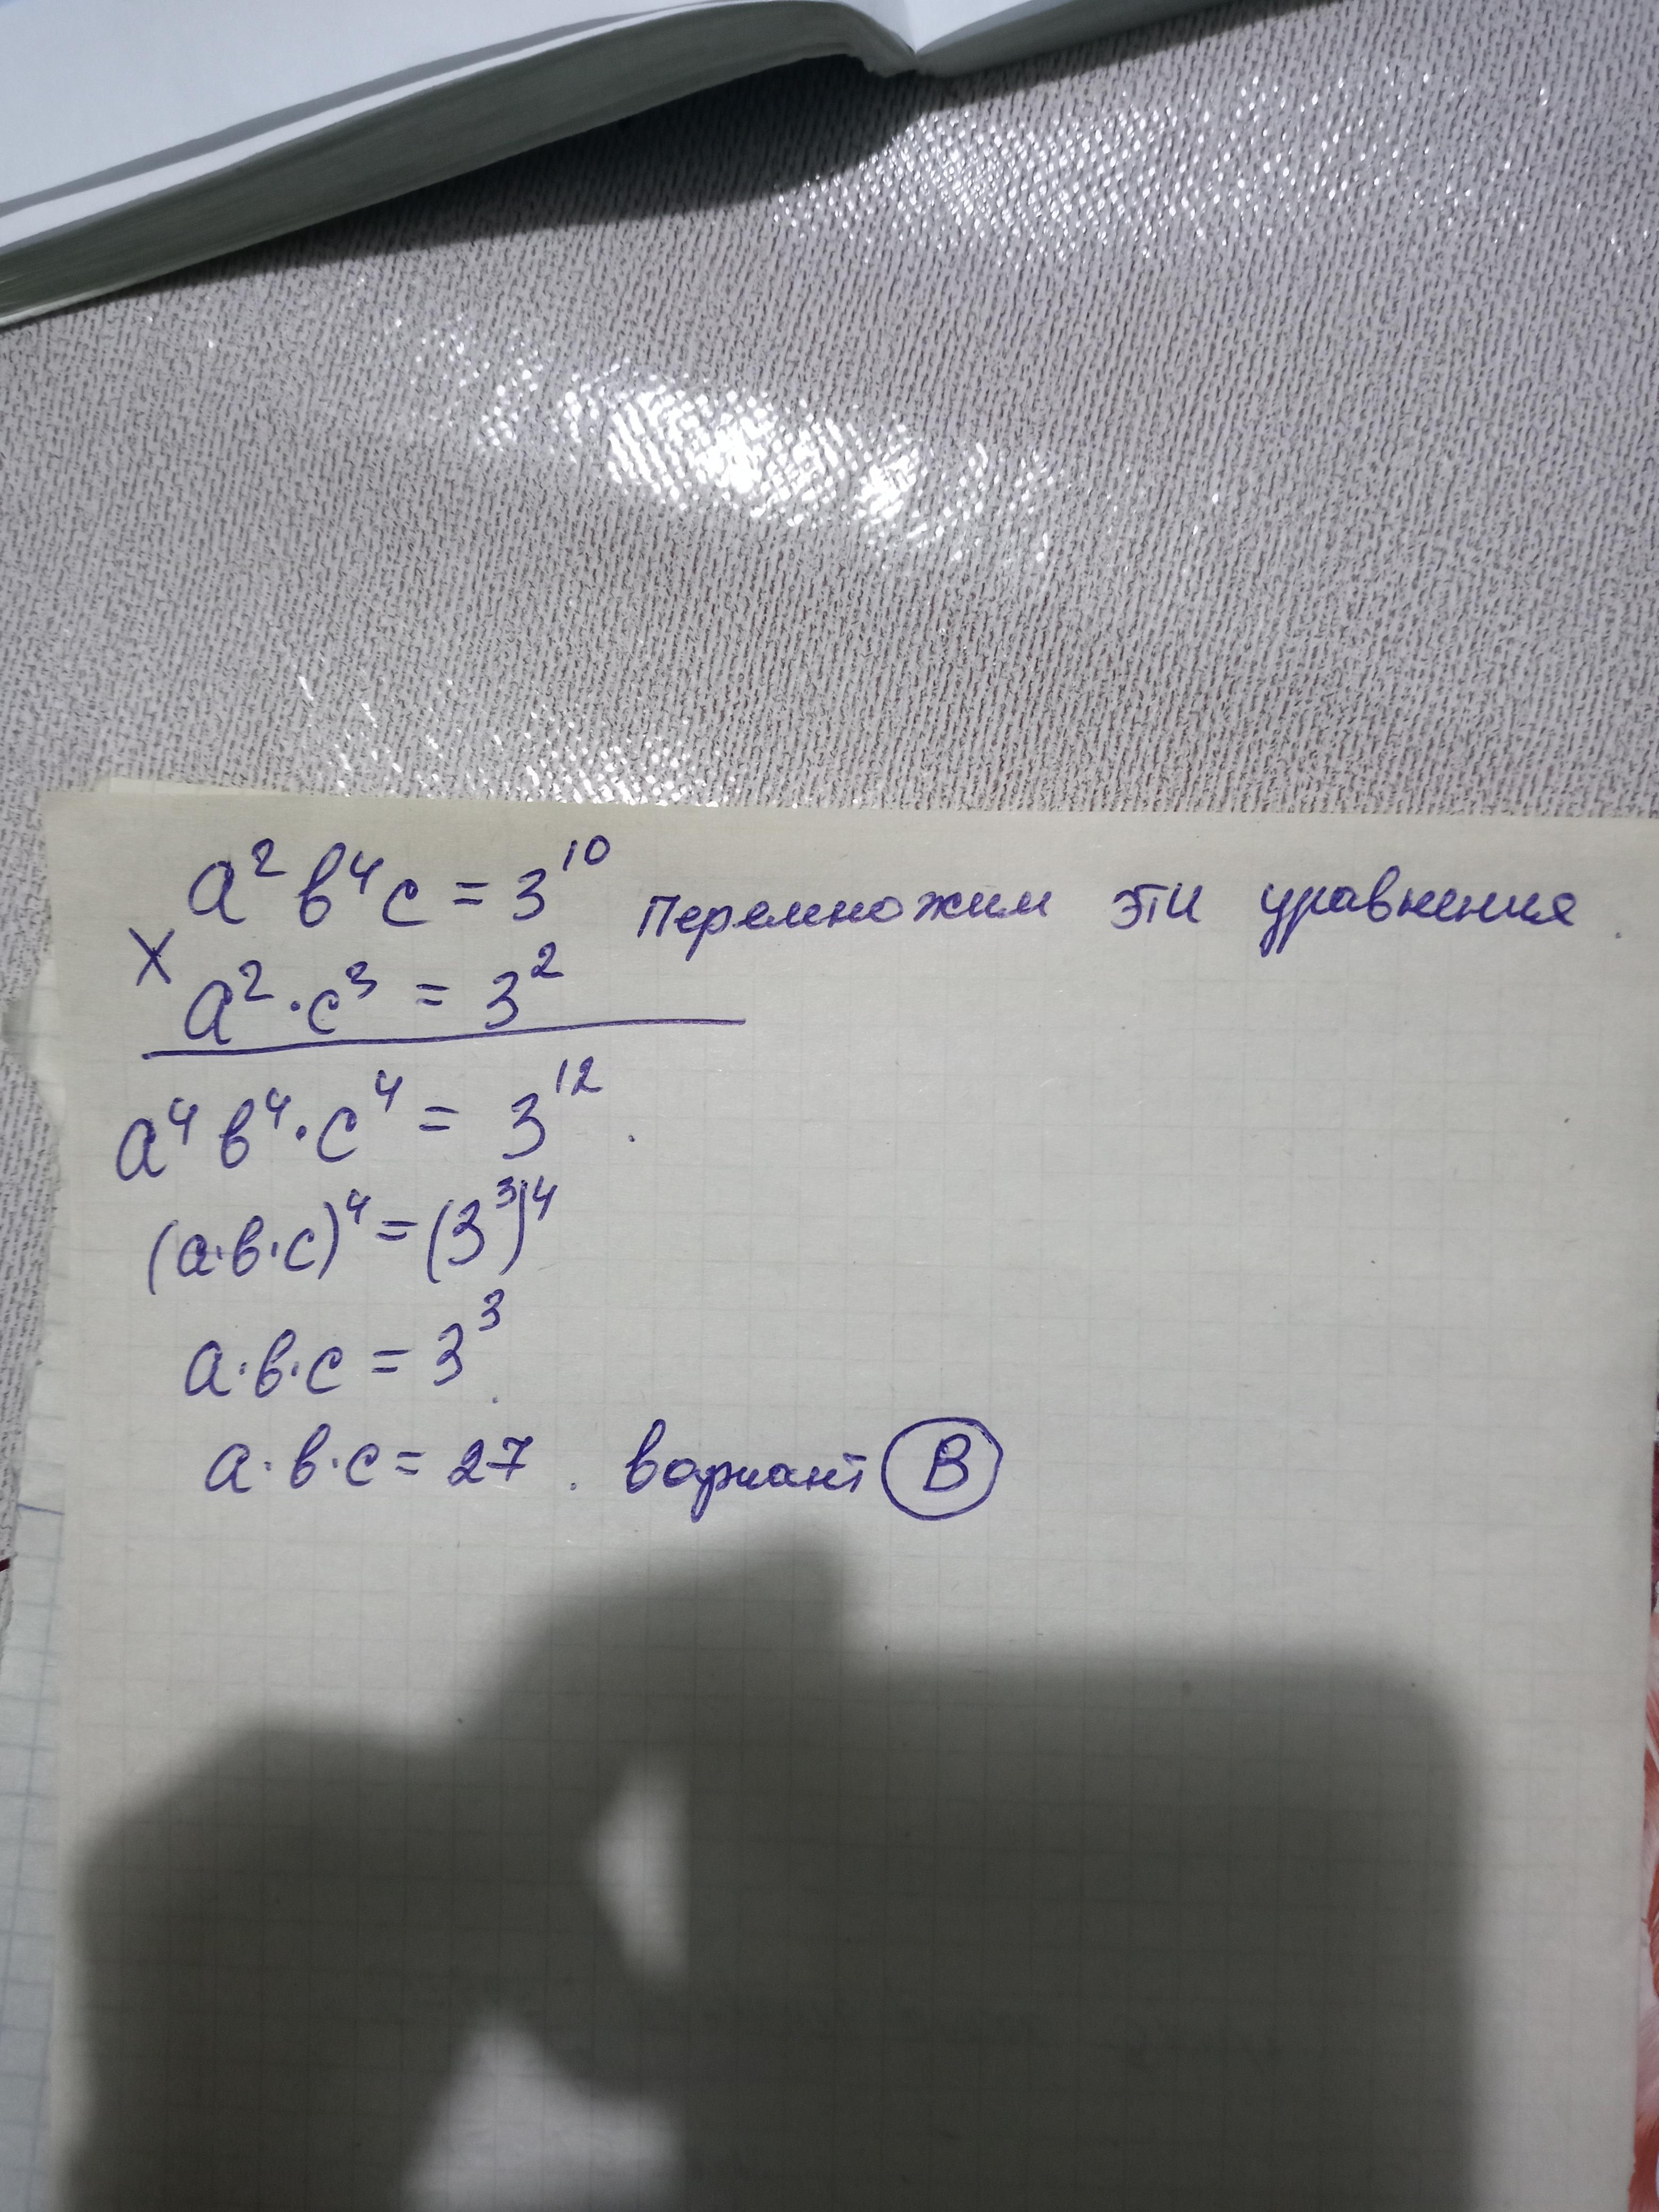 a² b⁴ c = 3¹⁰ Перемножим эти уравнения.
X
a² · c³ = 3²
a⁴ b⁴ · c⁴ = 3¹².
(a · b · c)⁴ = (3³)⁴
a · b · c = 3³.
a · b · c = 27. вариант B